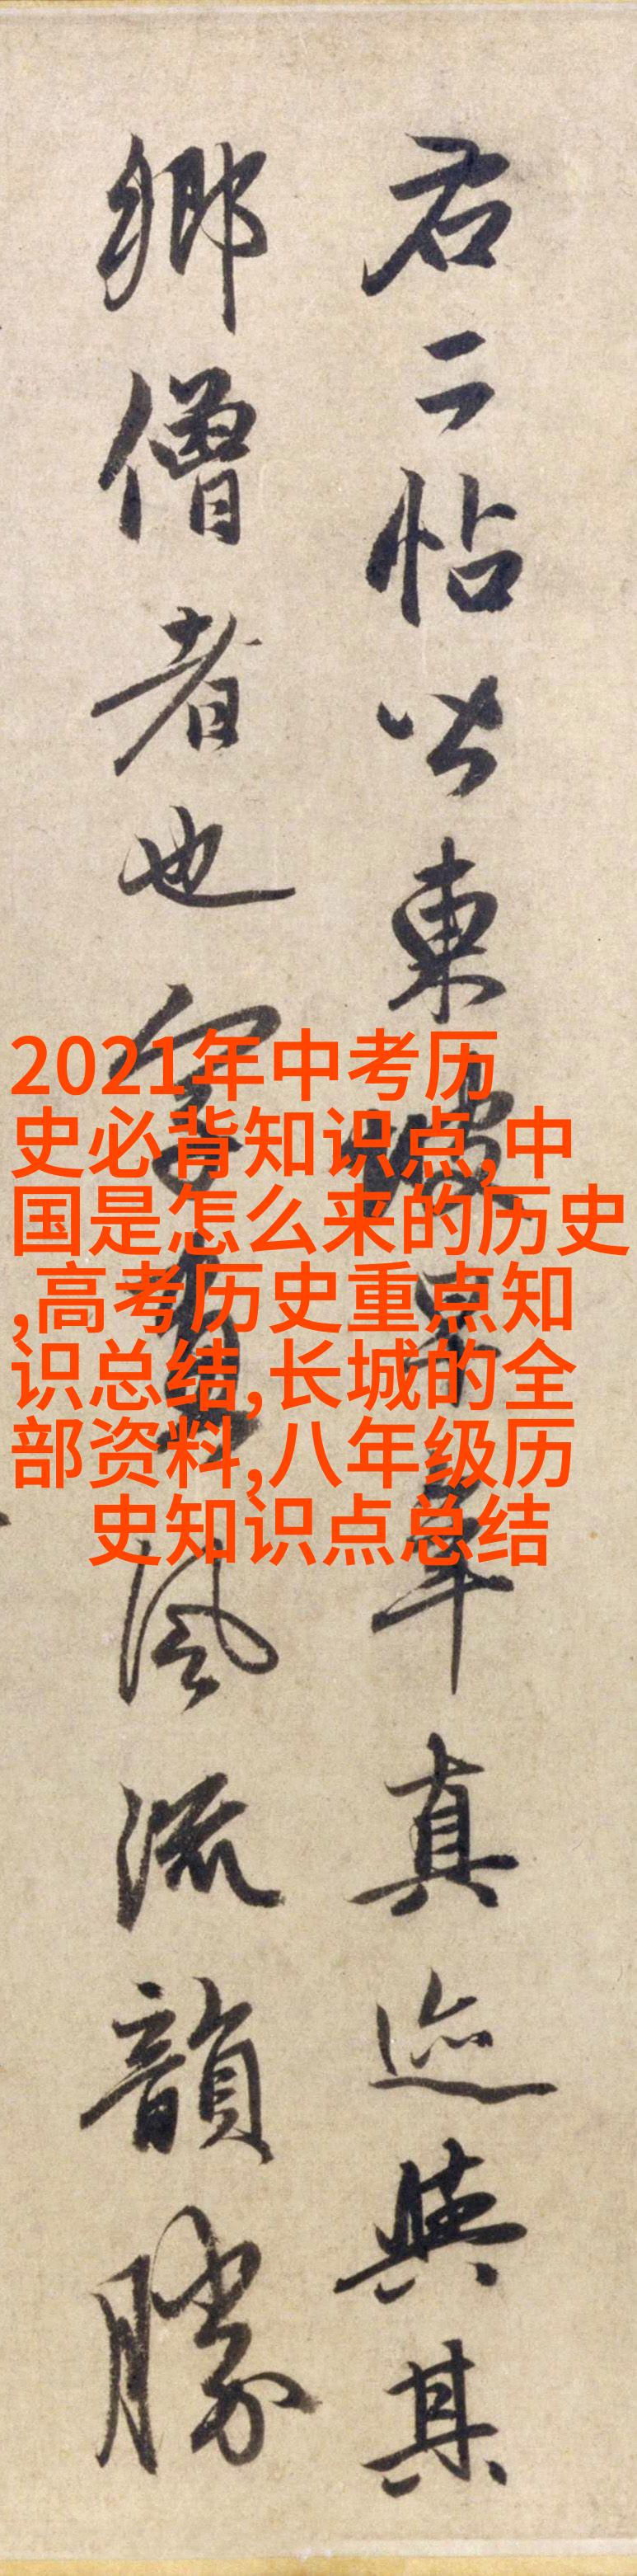 右二帖皆東坡早年真迹與其
鄉僧者也字畫風流韻勝
2021年中考历
史必背知识点,中
国是怎么来的历史
,高考历史重点知
识总结,长城的全
部资料,八年级历
史知识点总结